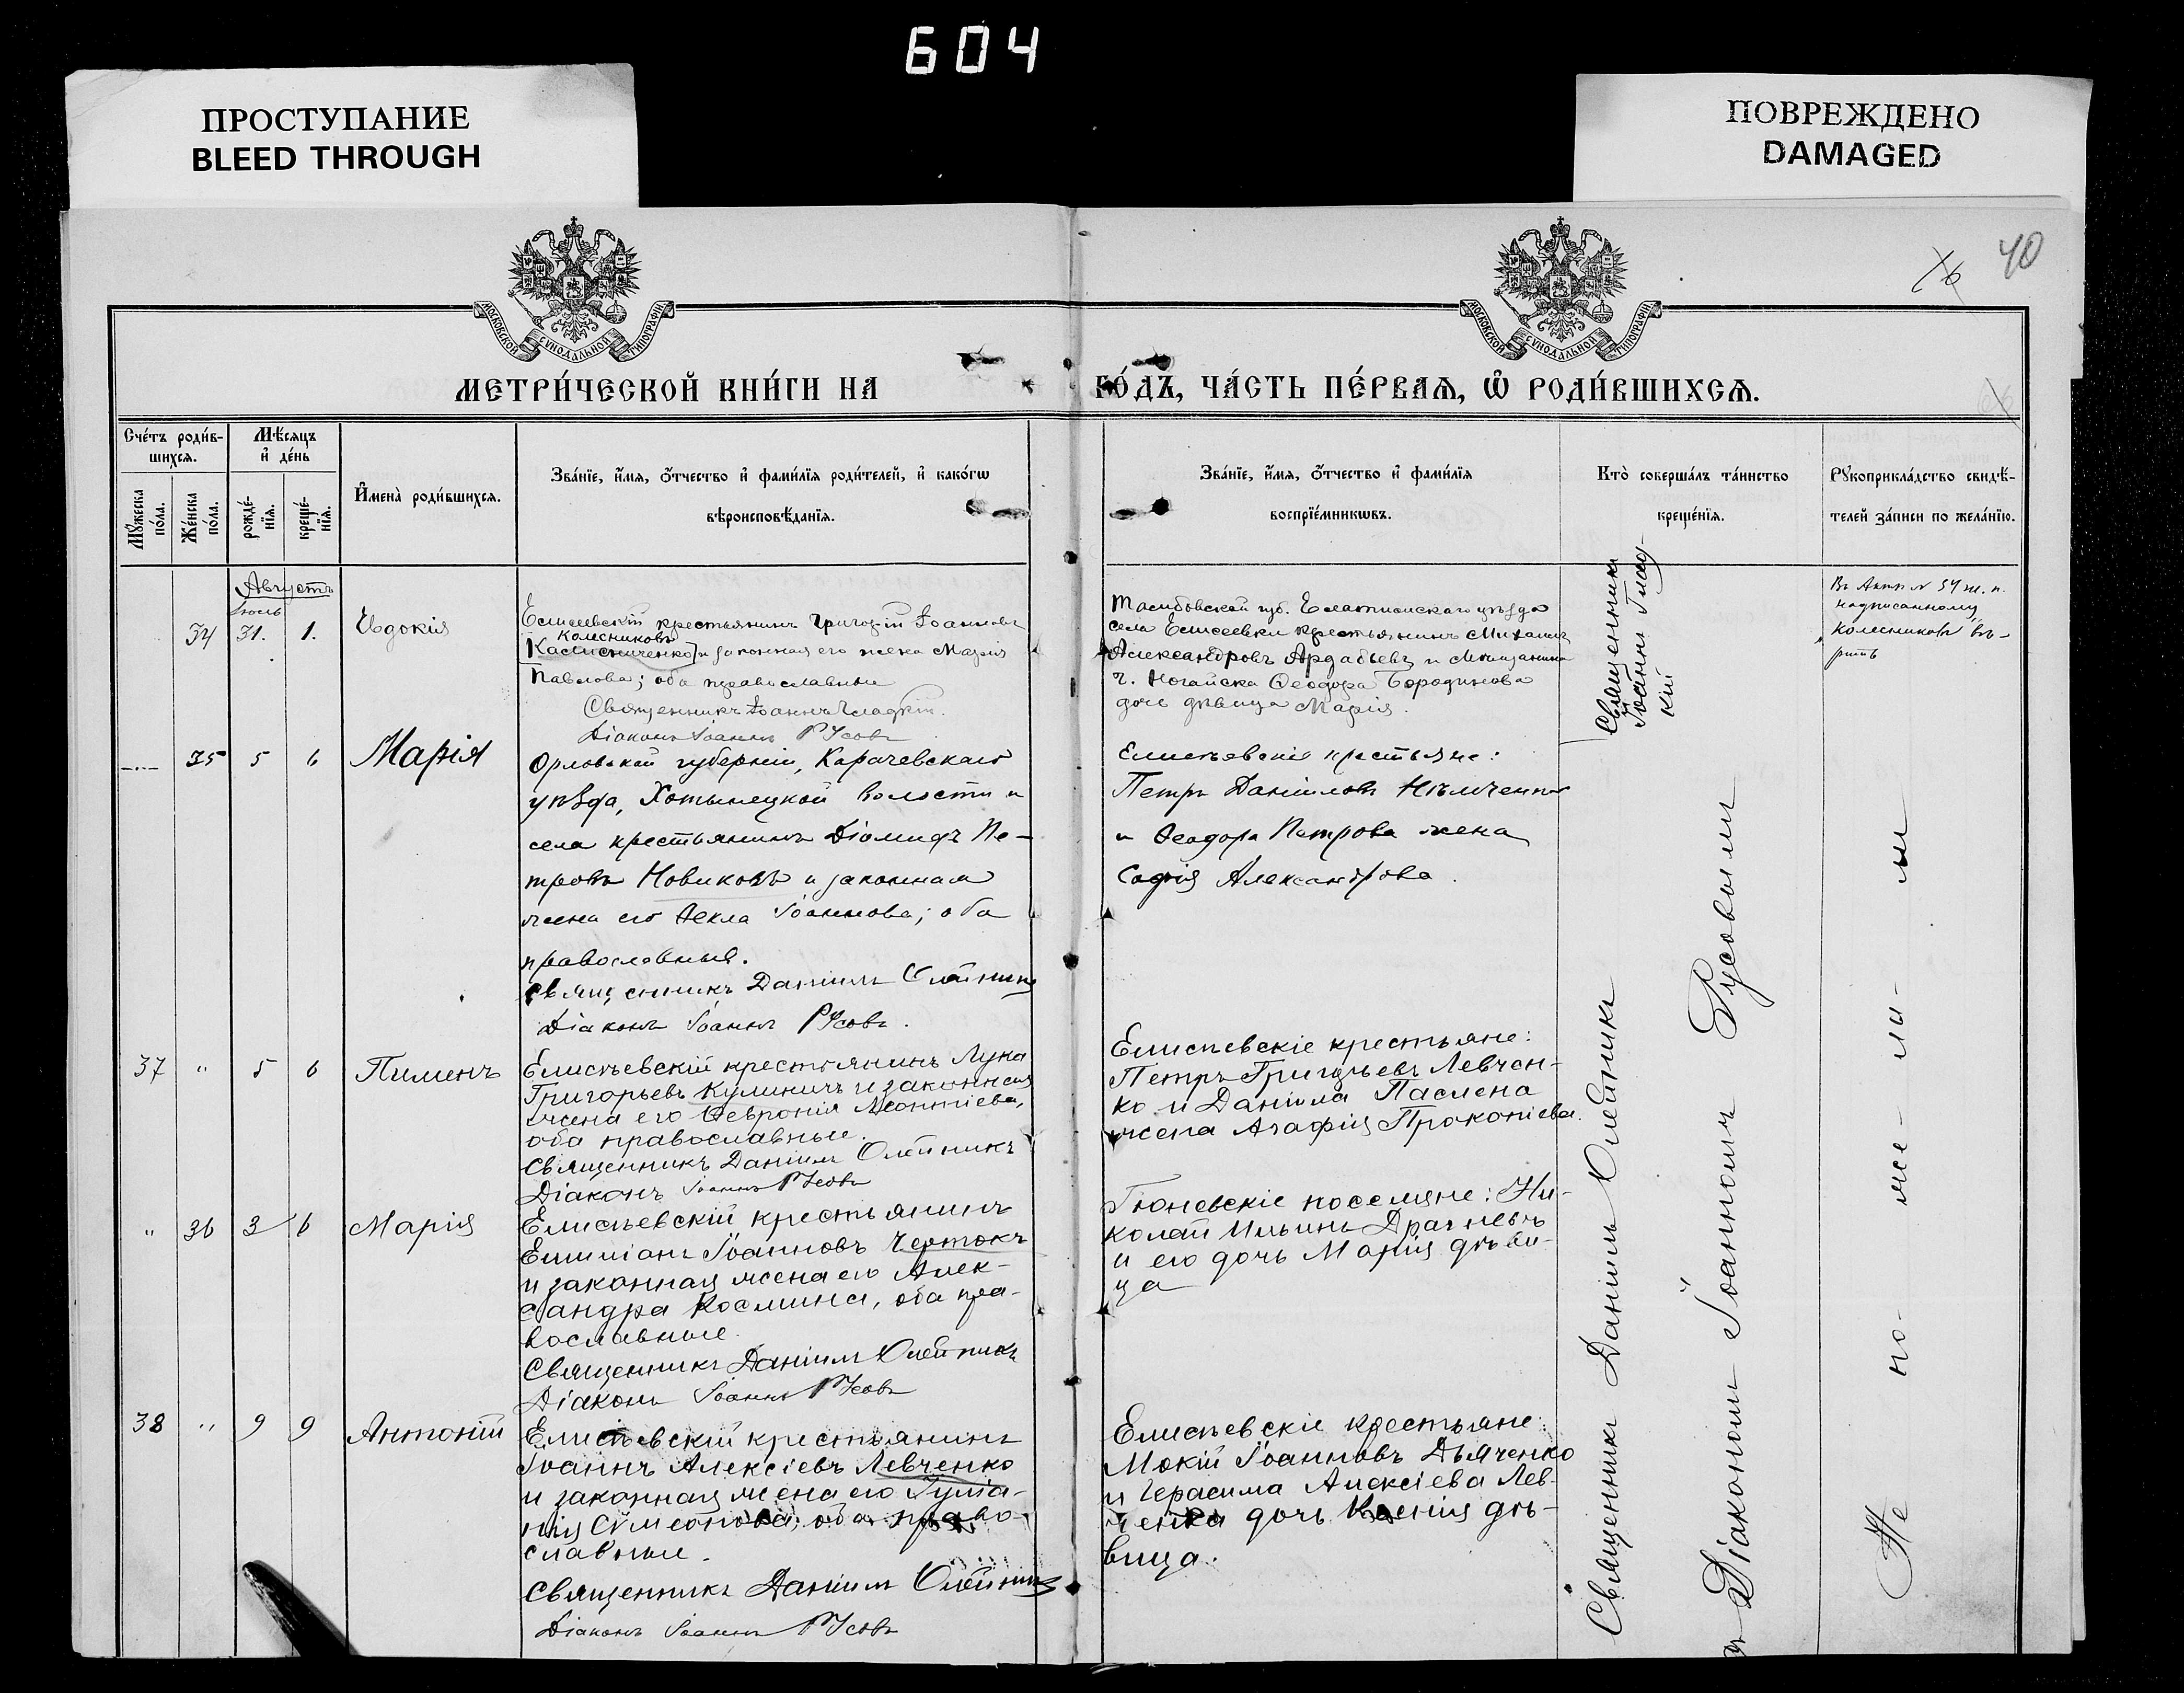 604
ПРОСТУПАНИЕ
BLEED THROUGH
ПОВРЕЖДЕНО
DAMAGED
40
МОСКОВСКОЙ СѴНОДАЛЬНОЙ ТИПОГРАФІИ
МОСКОВСКОЙ СѴНОДАЛЬНОЙ ТИПОГРАФІИ
МЕТРИ́ЧЕСКОЙ КНИ́ГИ НА ГО́ДЪ, ЧА́СТЬ ПЕ́РВАѦ, Ѽ РОДИ́ВШИХСѦ.
Сче́тъ роди́в-
шихсѧ.
Мѣ́сѧцъ
и҆ де́нь
Мꙋ́жеска
по́ла.
Же́нска
по́ла.
рожде́-
нїѧ.
креще́-
нїѧ.
И҆мена̀ роди́вшихсѧ.
Зва́нїе, и҆́мѧ, ѻ҆́тчество и҆ фами́лїѧ роди́телей, и҆ како́гѡ
вѣроисповѣ́данїѧ.
Зва́нїе, и҆́мѧ, ѻ҆́тчество и҆ фами́лїѧ
воспрїе́мникѡвъ.
Кто̀ соверша́лъ та́инство
креще́нїѧ.
Рꙋкоприкла́дство свидѣ́-
телей за́писи по жела́нїю.
Августъ
Іюль
34 31. 1. Евдокія
Елисеевскій крестьянинъ Григорій Іоанновъ
Колесниковъ
и законная его жена Марія
Павлова; оба православные
Священникъ Іоаннъ Гладкій.
Діаконъ Іоаннъ Русовъ
Тамбовской губ. Елатомскаго уѣзда
села Елисеевки крестьянинъ Михаилъ
Александровъ Ардабьевъ и Мѣщанина
г. Ногайска Ѳеодора Бородинова
дочь дѣвица Марія.
Священникъ
Іоаннъ Глад-
кій
надписанному
Колесниковъ вѣ-
рить
35 5 6 Марія
Орловской губерніи, Карачевскаго
уѣзда, Хотынецкой волости и
села крестьянинъ Діомидъ Пе-
тровъ Новиковъ и законная
жена его Ѳекла Іоаннова; оба
православные.
Священникъ Даніилъ Олейникъ
Діаконъ Іоаннъ Русовъ.
Елисѣевскіе крестьяне:
Петръ Даніиловъ Нѣмченко
и Ѳеодора Петрова жена
Софія Александрова.
37 " 5 6 Пименъ
Елисѣевскій крестьянинъ Лука
Григорьевъ Кулиничъ и законная
жена его Ѳевронія Леонтіева,
оба православные.
Священникъ Даніилъ Олейникъ
Діаконъ Іоаннъ Русовъ
Елисѣевскіе крестьяне:
Петръ Григорьевъ Левчен-
ко и Даніила Паслена
жена Агафія Прокопіева.
" 36 3 6 Марія
Елисѣевскій крестьянинъ
Емиліанъ Іоанновъ Чертокъ
и законная жена его Алек-
сандра Космина, оба пра-
вославные.
Священникъ Даніилъ Олейникъ
Діаконъ Іоаннъ Русовъ
Гюневскіе поселяне: Ни-
колай Ильинъ Драгневъ
и его дочь Марія дѣви-
ца
38 " 9 9 Антоній
Елисѣевскій крестьянинъ
Іоаннъ Алексіевъ Левченко
и законная жена его Іуліа-
нія Сѵмеонова; оба право-
славные.
Священникъ Даніилъ Олейникъ
Діаконъ Іоаннъ Русовъ
Елисѣевскіе крестьяне:
Мокій Іоанновъ Дьяченко
и Герасима Алексіева Лев-
ченка дочь Ксенія дѣ-
вица.
Священникъ Даніилъ Олейникъ
Діакономъ Іоанномъ Русовымъ
Не